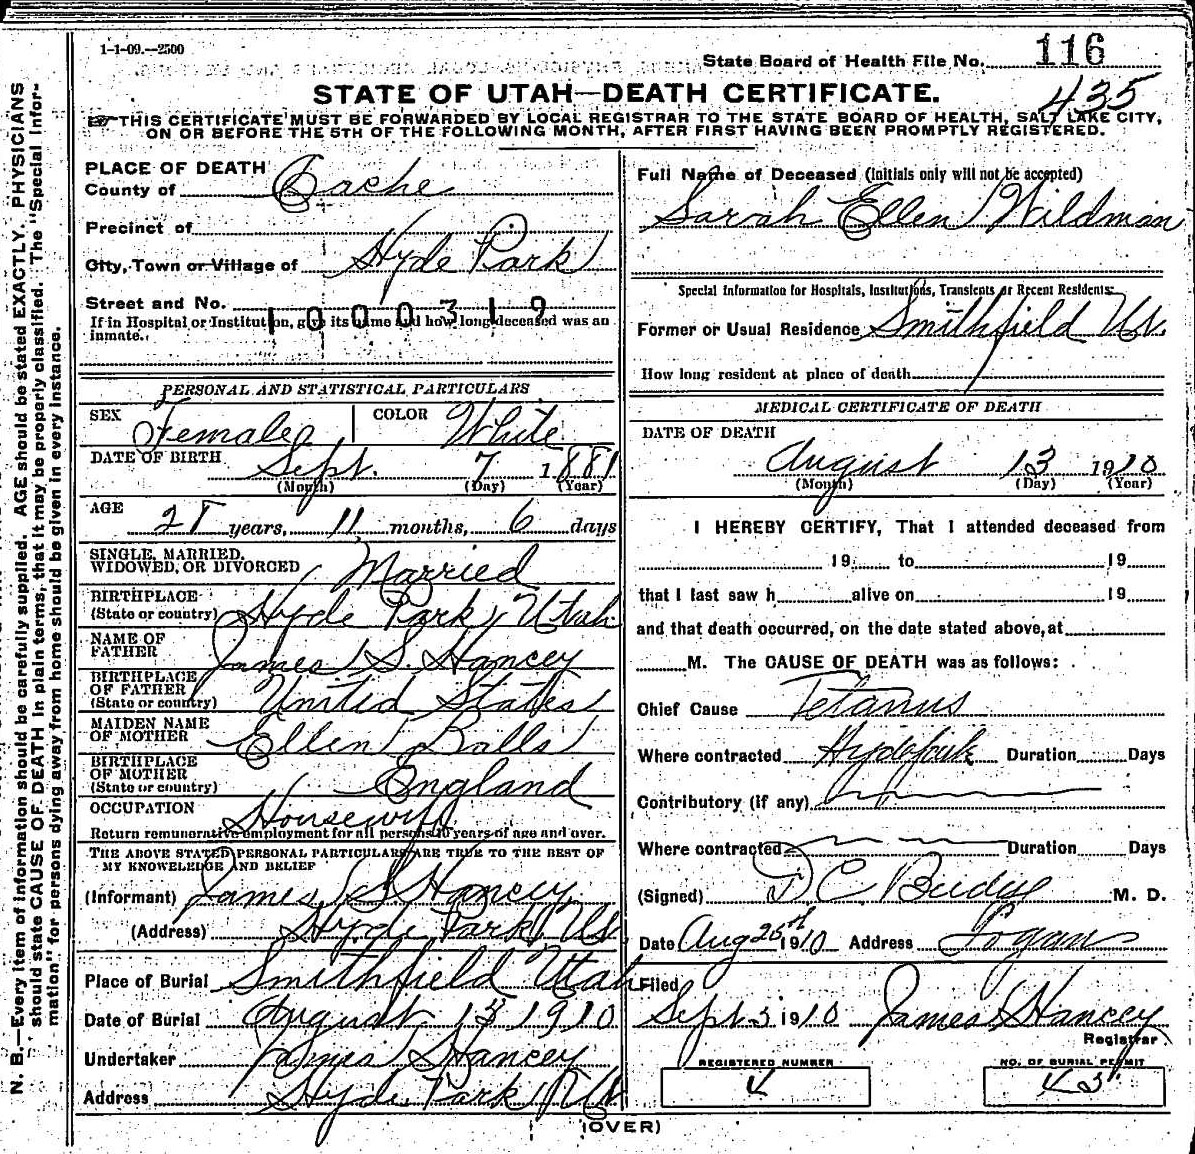 1-1-09.—2500
State Board of Health File No. 116
435
STATE OF UTAH—DEATH CERTIFICATE.
THIS CERTIFICATE MUST BE FORWARDED BY LOCAL REGISTRAR TO THE STATE BOARD OF HEALTH, SALT LAKE CITY,
ON OR BEFORE THE 5TH OF THE FOLLOWING MONTH, AFTER FIRST HAVING BEEN PROMPTLY REGISTERED.
N. B.—Every item of information should be carefully supplied. AGE should be stated EXACTLY. PHYSICIANS
should state CAUSE OF DEATH in plain terms, that it may be properly classified. The "Special Infor-
mation" for persons dying away from home should be given in every instance.
PLACE OF DEATH
County of Cache
Precinct of
City, Town or Village of Hyde Park
Street and No.
1000319
If in Hospital or Institution, give its name and how long deceased was an
inmate.
PERSONAL AND STATISTICAL PARTICULARS
SEX Female COLOR White
DATE OF BIRTH Sept. 7 1881
(Month) (Day) (Year)
AGE 28 years, 11 months, 6 days
SINGLE, MARRIED,
WIDOWED, OR DIVORCED Married
BIRTHPLACE
(State or country) Hyde Park, Utah
NAME OF
FATHER James S. Hancey
BIRTHPLACE
OF FATHER
(State or country) United States
MAIDEN NAME
OF MOTHER Ellen Balls
BIRTHPLACE
OF MOTHER
(State or country) England
OCCUPATION Housewife
Return remunerative employment for all persons 10 years of age and over.
THE ABOVE STATED PERSONAL PARTICULARS ARE TRUE TO THE BEST OF
MY KNOWLEDGE AND BELIEF
(Informant) James S Hancey
(Address) Hyde Park Ut.
Place of Burial Smithfield Utah
Date of Burial August 13 1910
Undertaker James S Hancey
Address Hyde Park Ut
Full Name of Deceased (Initials only will not be accepted)
Sarah Ellen Wildman
Special Information for Hospitals, Institutions, Transients or Recent Residents:
Former or Usual Residence Smithfield Ut.
How long resident at place of death
MEDICAL CERTIFICATE OF DEATH
DATE OF DEATH
August 13 1910
(Month) (Day) (Year)
I HEREBY CERTIFY, That I attended deceased from
19 to 19
that I last saw h alive on 19
and that death occurred, on the date stated above, at
M. The CAUSE OF DEATH was as follows:
Chief Cause Tetanus
Where contracted Hyde Park Duration Days
Contributory (if any)
Where contracted Duration Days
(Signed) D C Budge M. D.
Date Aug 25th 1910 Address Logan
Filed
Sept 3 1910 James S Hancey
Registrar
REGISTERED NUMBER
4
NO. OF BURIAL PERMIT
43
(OVER)